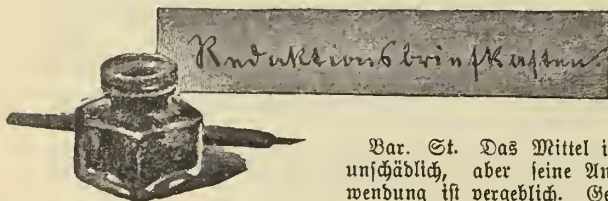 Redaktionsbriefkasten
Bar. St. Das Mittel i
unschädlich, aber seine An
wendung ist vergeblich. Ge